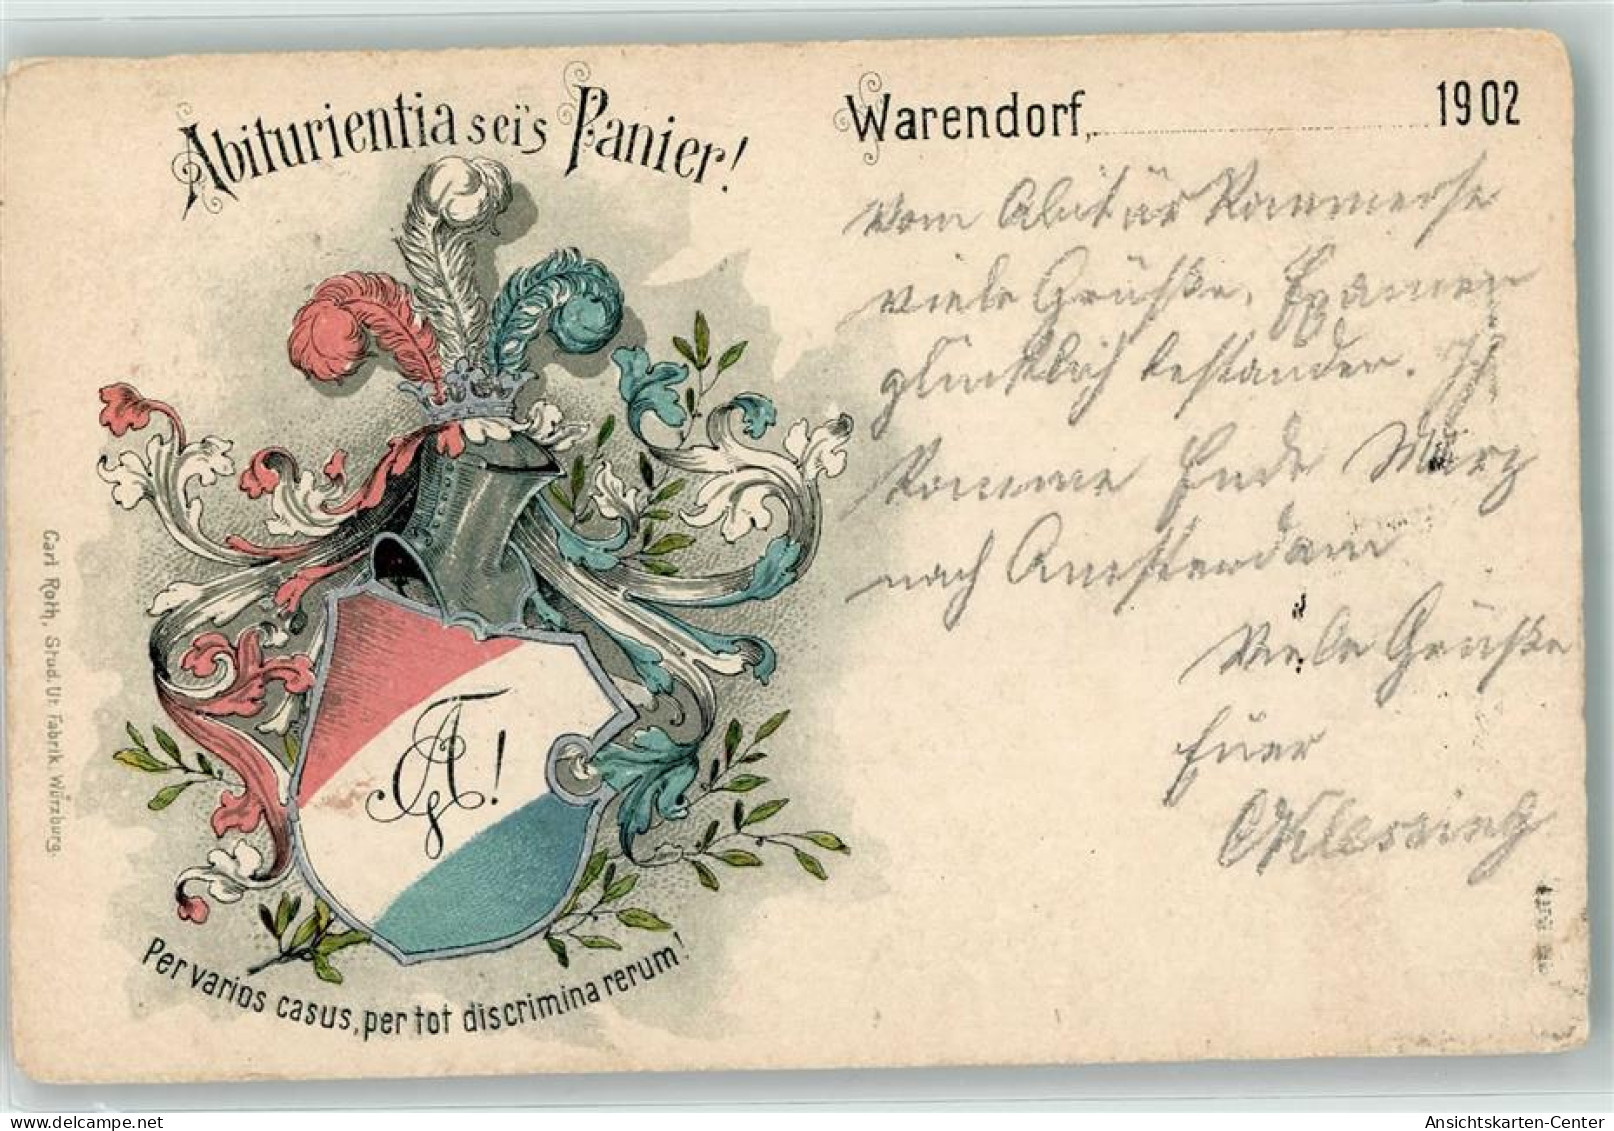 Abiturientia sei's Panier!
Warendorf, 1902
Vom Abitür Kommerse
viele Grüße. Examen
glücklich bestanden. Ich
komme Ende März
nach Amsterdam
Viele Grüße
Euer
A!
Per varios casus, per tot discrimina rerum!
Carl Roth, Stud. Ut. Fabrik Würzburg.
Ansichtskarten-Center